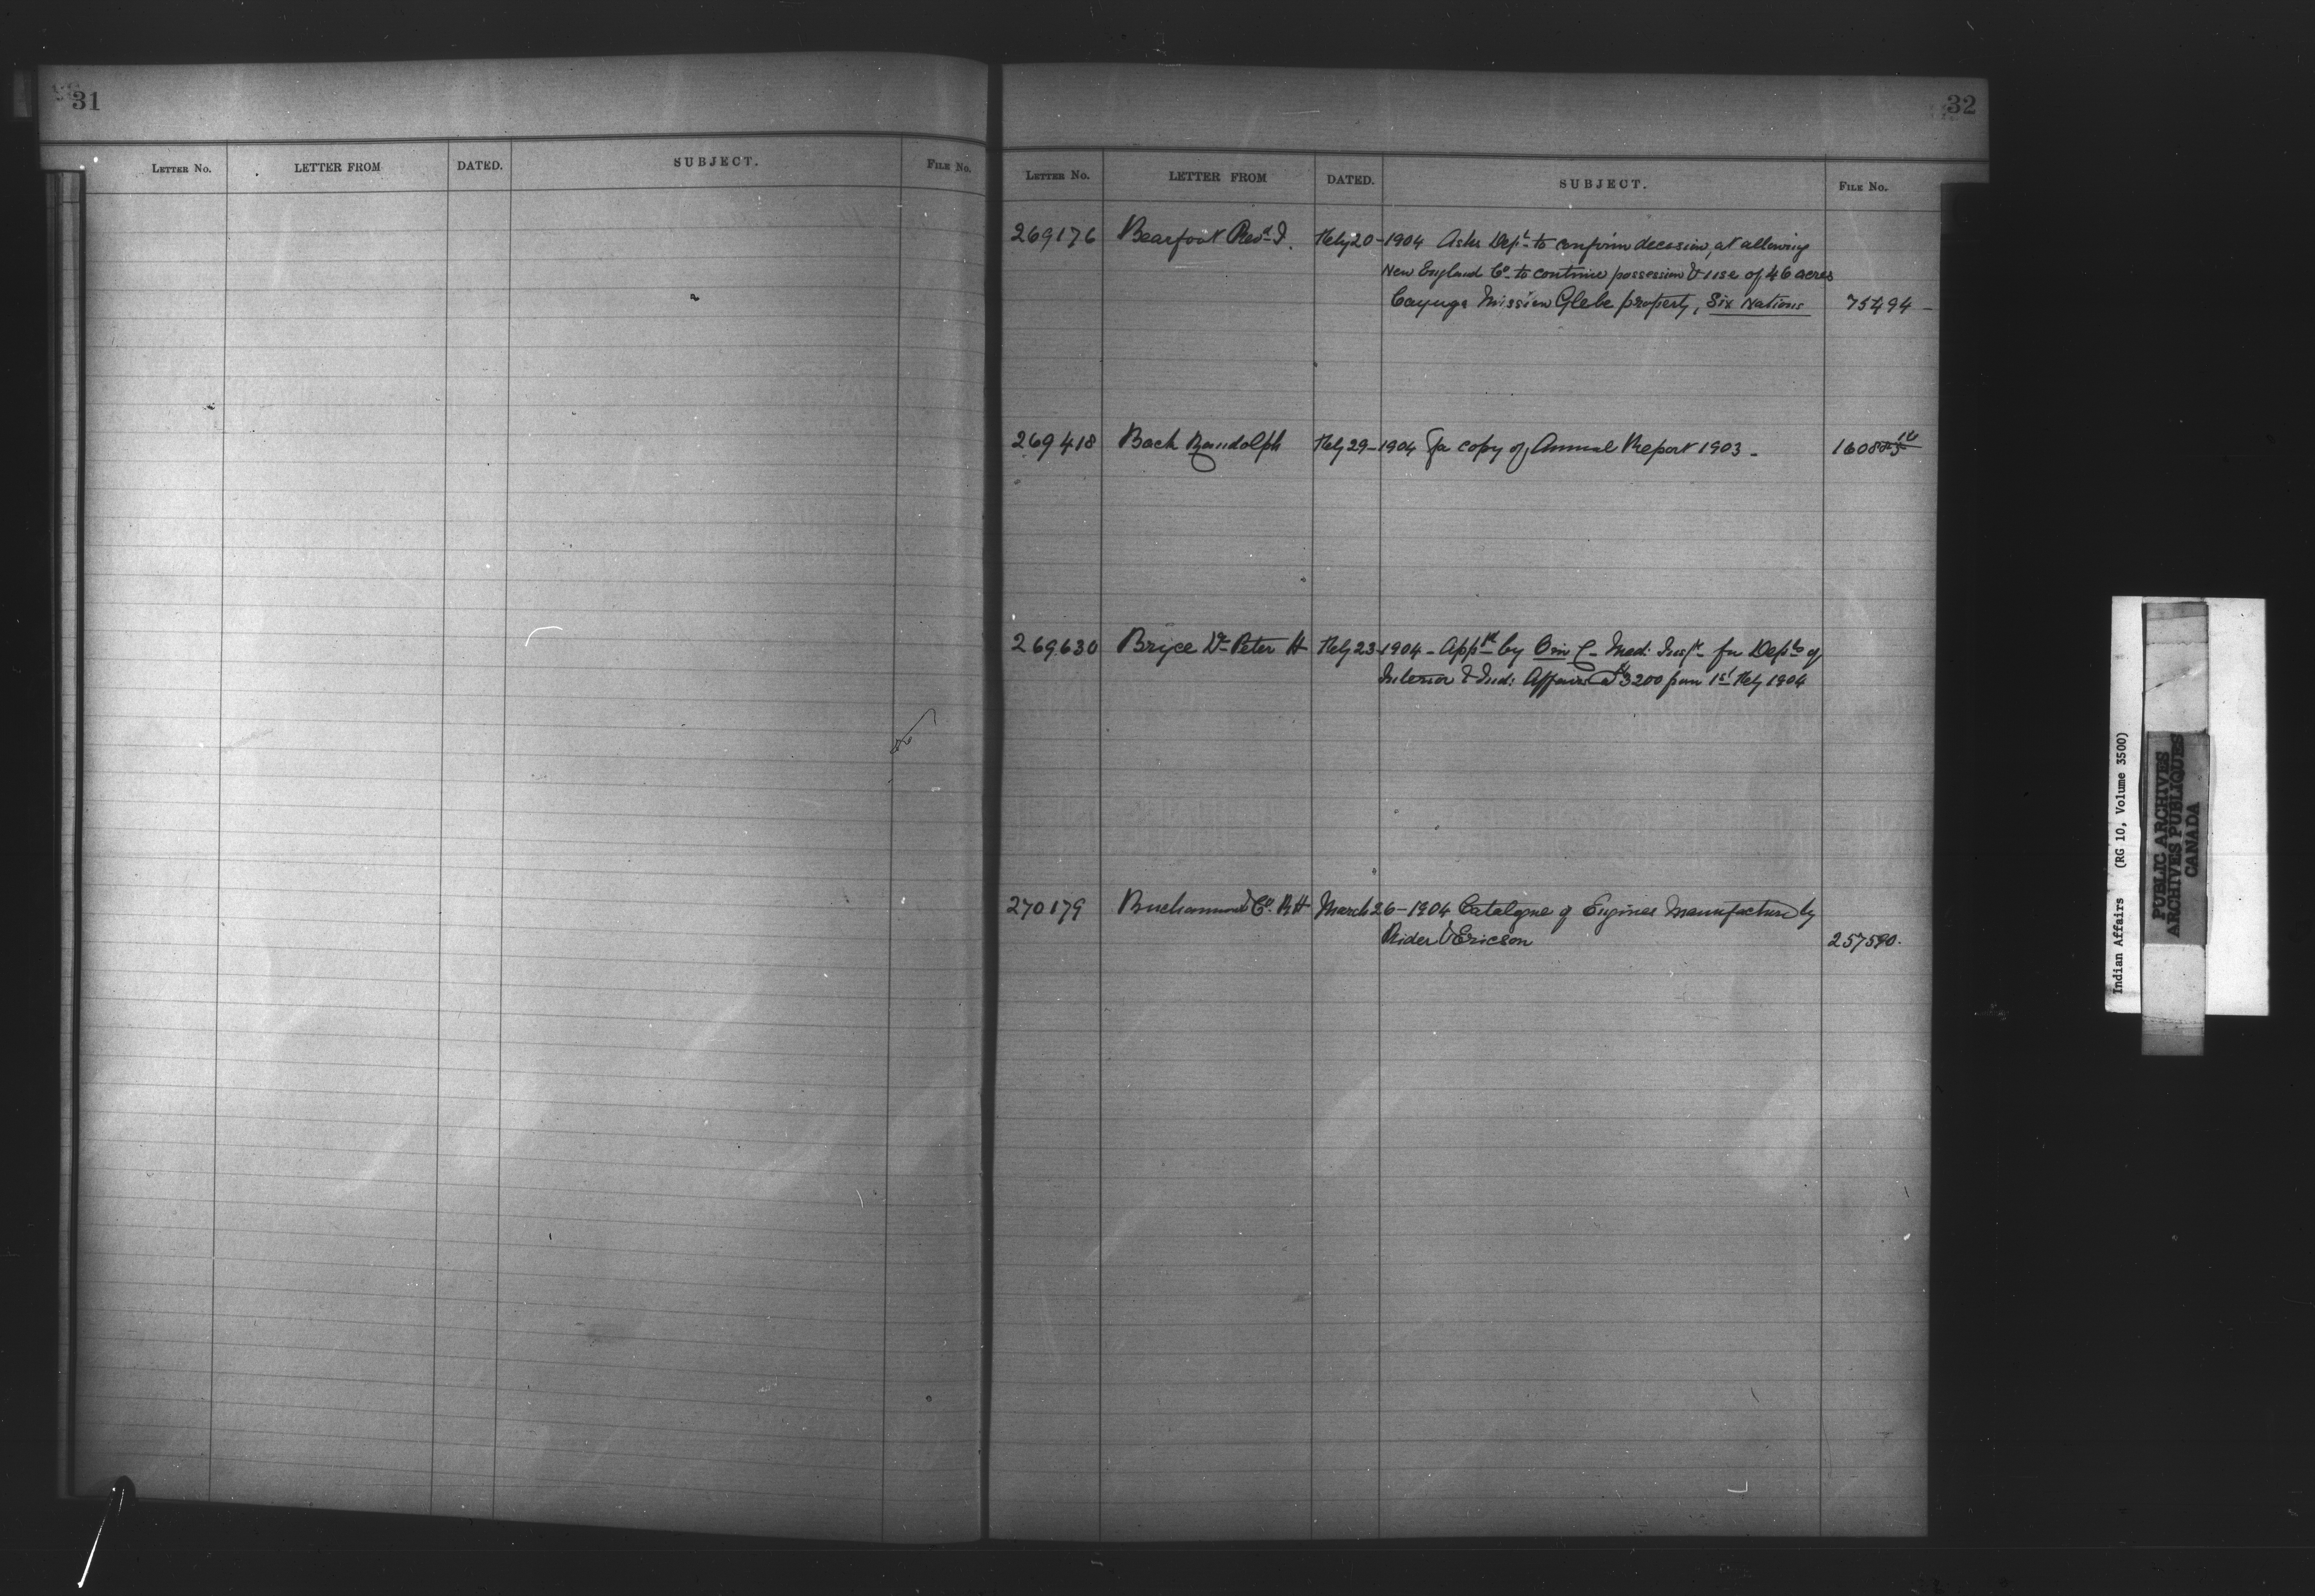 31
LETTER NO. LETTER FROM DATED. SUBJECT. FILE NO.
32
LETTER NO. LETTER FROM DATED. SUBJECT. FILE NO.
269176 Bearfoot Revd I. Feby 20-1904 Asks Dept to confirm decision, at allowing
New England Co. to continue possession & use of 46 acres
Cayuga Mission Glebe property, Six Nations 75494 -
269418 Bach Randolph Feby 29-1904 For copy of Annual Report 1903 -
269630 Bryce Dr Peter H Feby 23-1904 - Appd by O in C - Med: Inspr for Depts of
Interior & Ind: Affairs @ $3200 from 1st Feby 1904
270179 Buchanan & Co. R H March 26-1904 Catalogue of Engines Manufacture by
Rider & Ericson 257590.
Indian Affairs (RG 10, Volume 3500)
PUBLIC ARCHIVES
ARCHIVES PUBLIQUES
CANADA